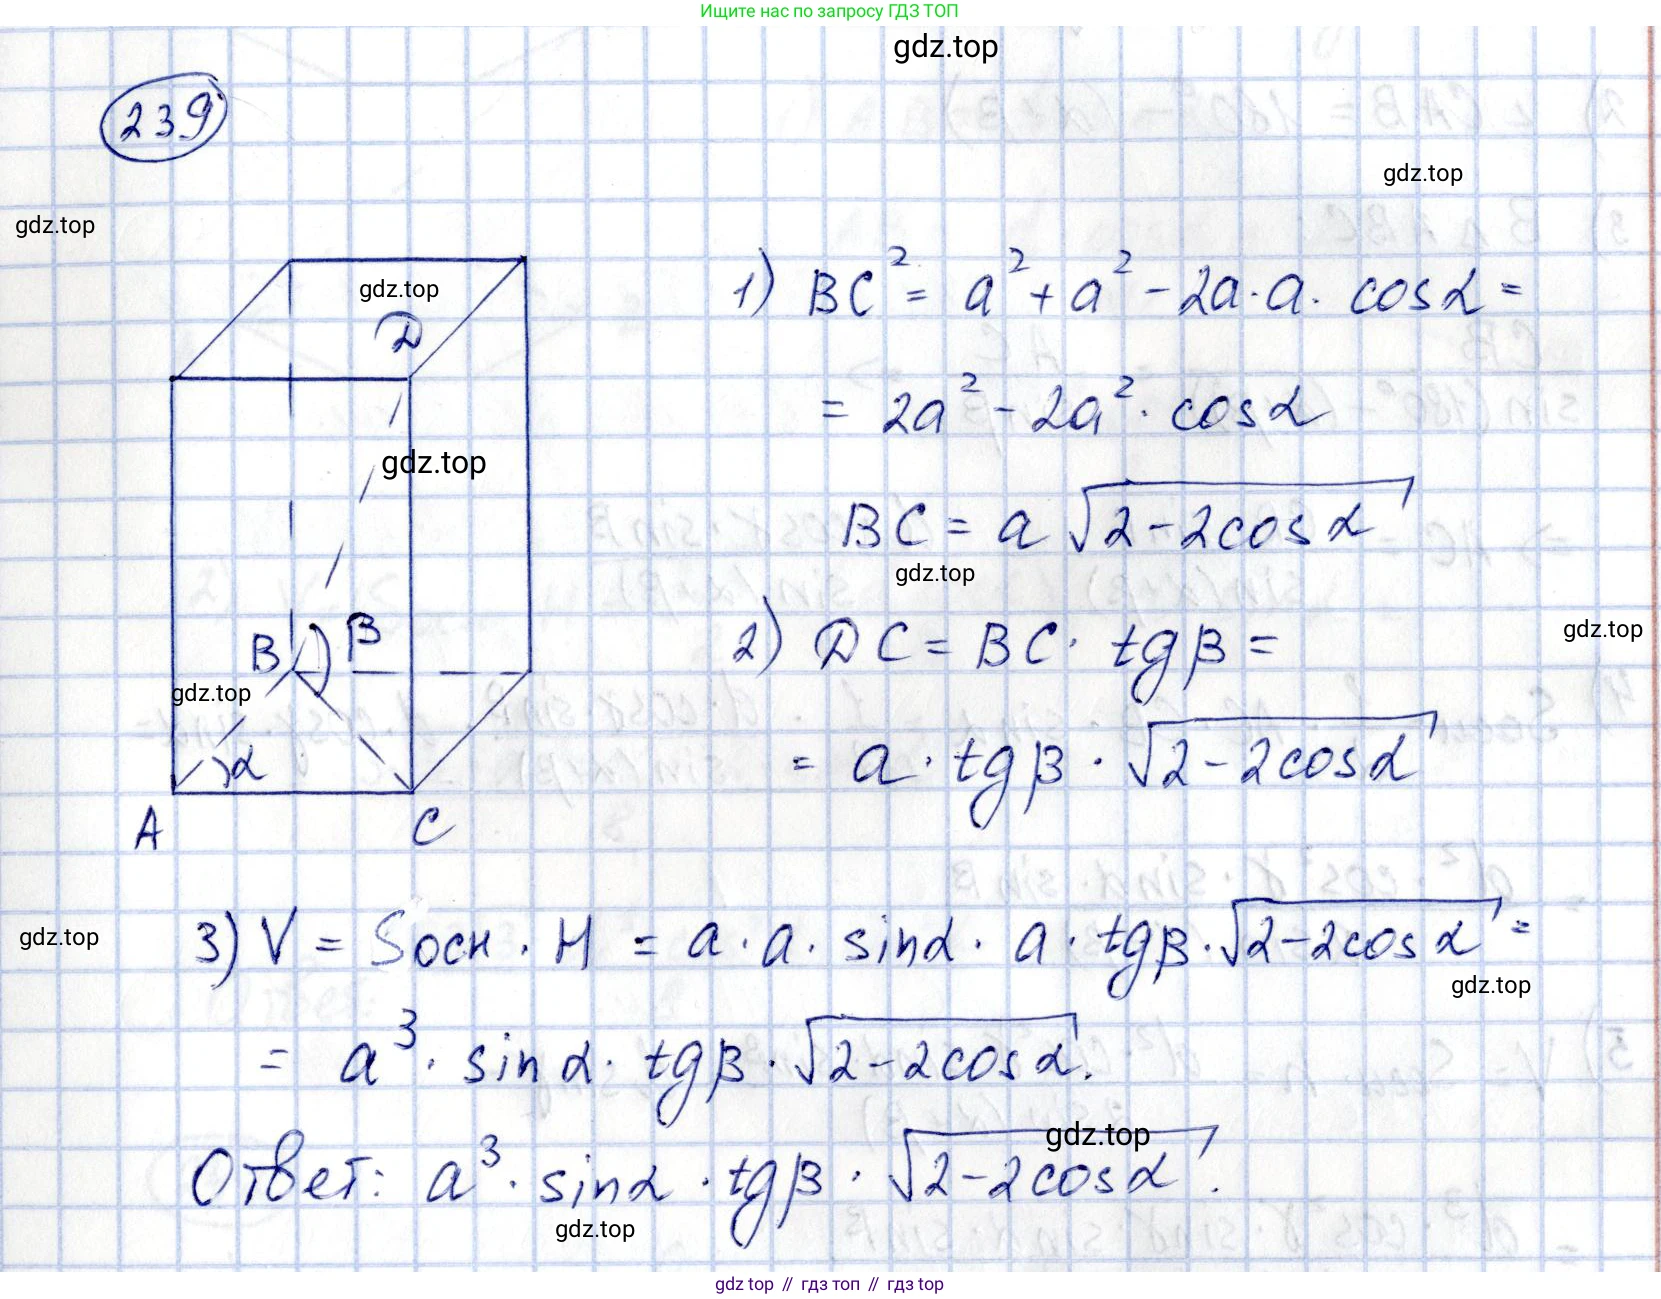 Ищите нас по запросу ГДЗ ТОП
gdz.top
239
gdz.top
gdz.top
gdz.top
D
gdz.top
B β
gdz.top
α
A C
1) BC² = a² + a² - 2a · a · cosα =
= 2a² - 2a² · cosα
BC = a √2 - 2cosα
gdz.top
2) DC = BC · tgβ =
gdz.top
= a · tgβ · √2 - 2cosα
3) V = Sосн · H = a · a · sinα · a · tgβ · √2 - 2cosα =
gdz.top
gdz.top
= a³ · sinα · tgβ · √2 - 2cosα.
gdz.top
Ответ: a³ · sinα · tgβ · √2 - 2cosα.
gdz.top
gdz top // гдз топ // gdz top